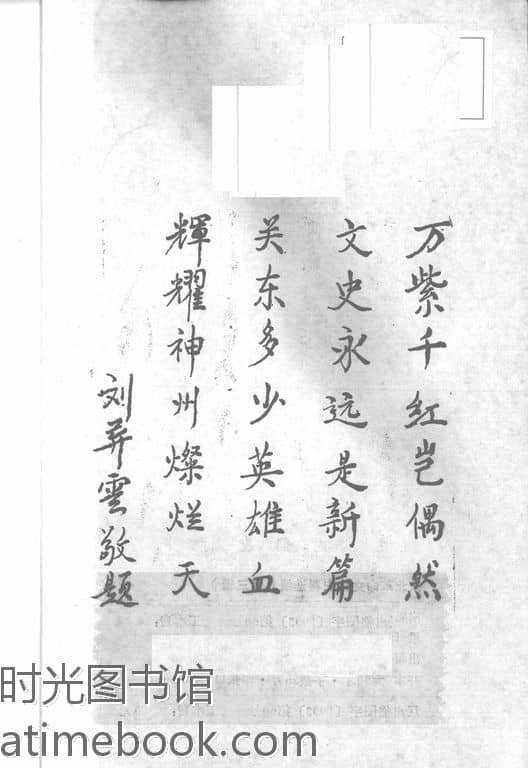 万紫千红岂偶然
文史永远是新篇
关东多少英雄血
輝耀神州燦烂天
刘莽雲敬题
时光图书馆
atimebook.com